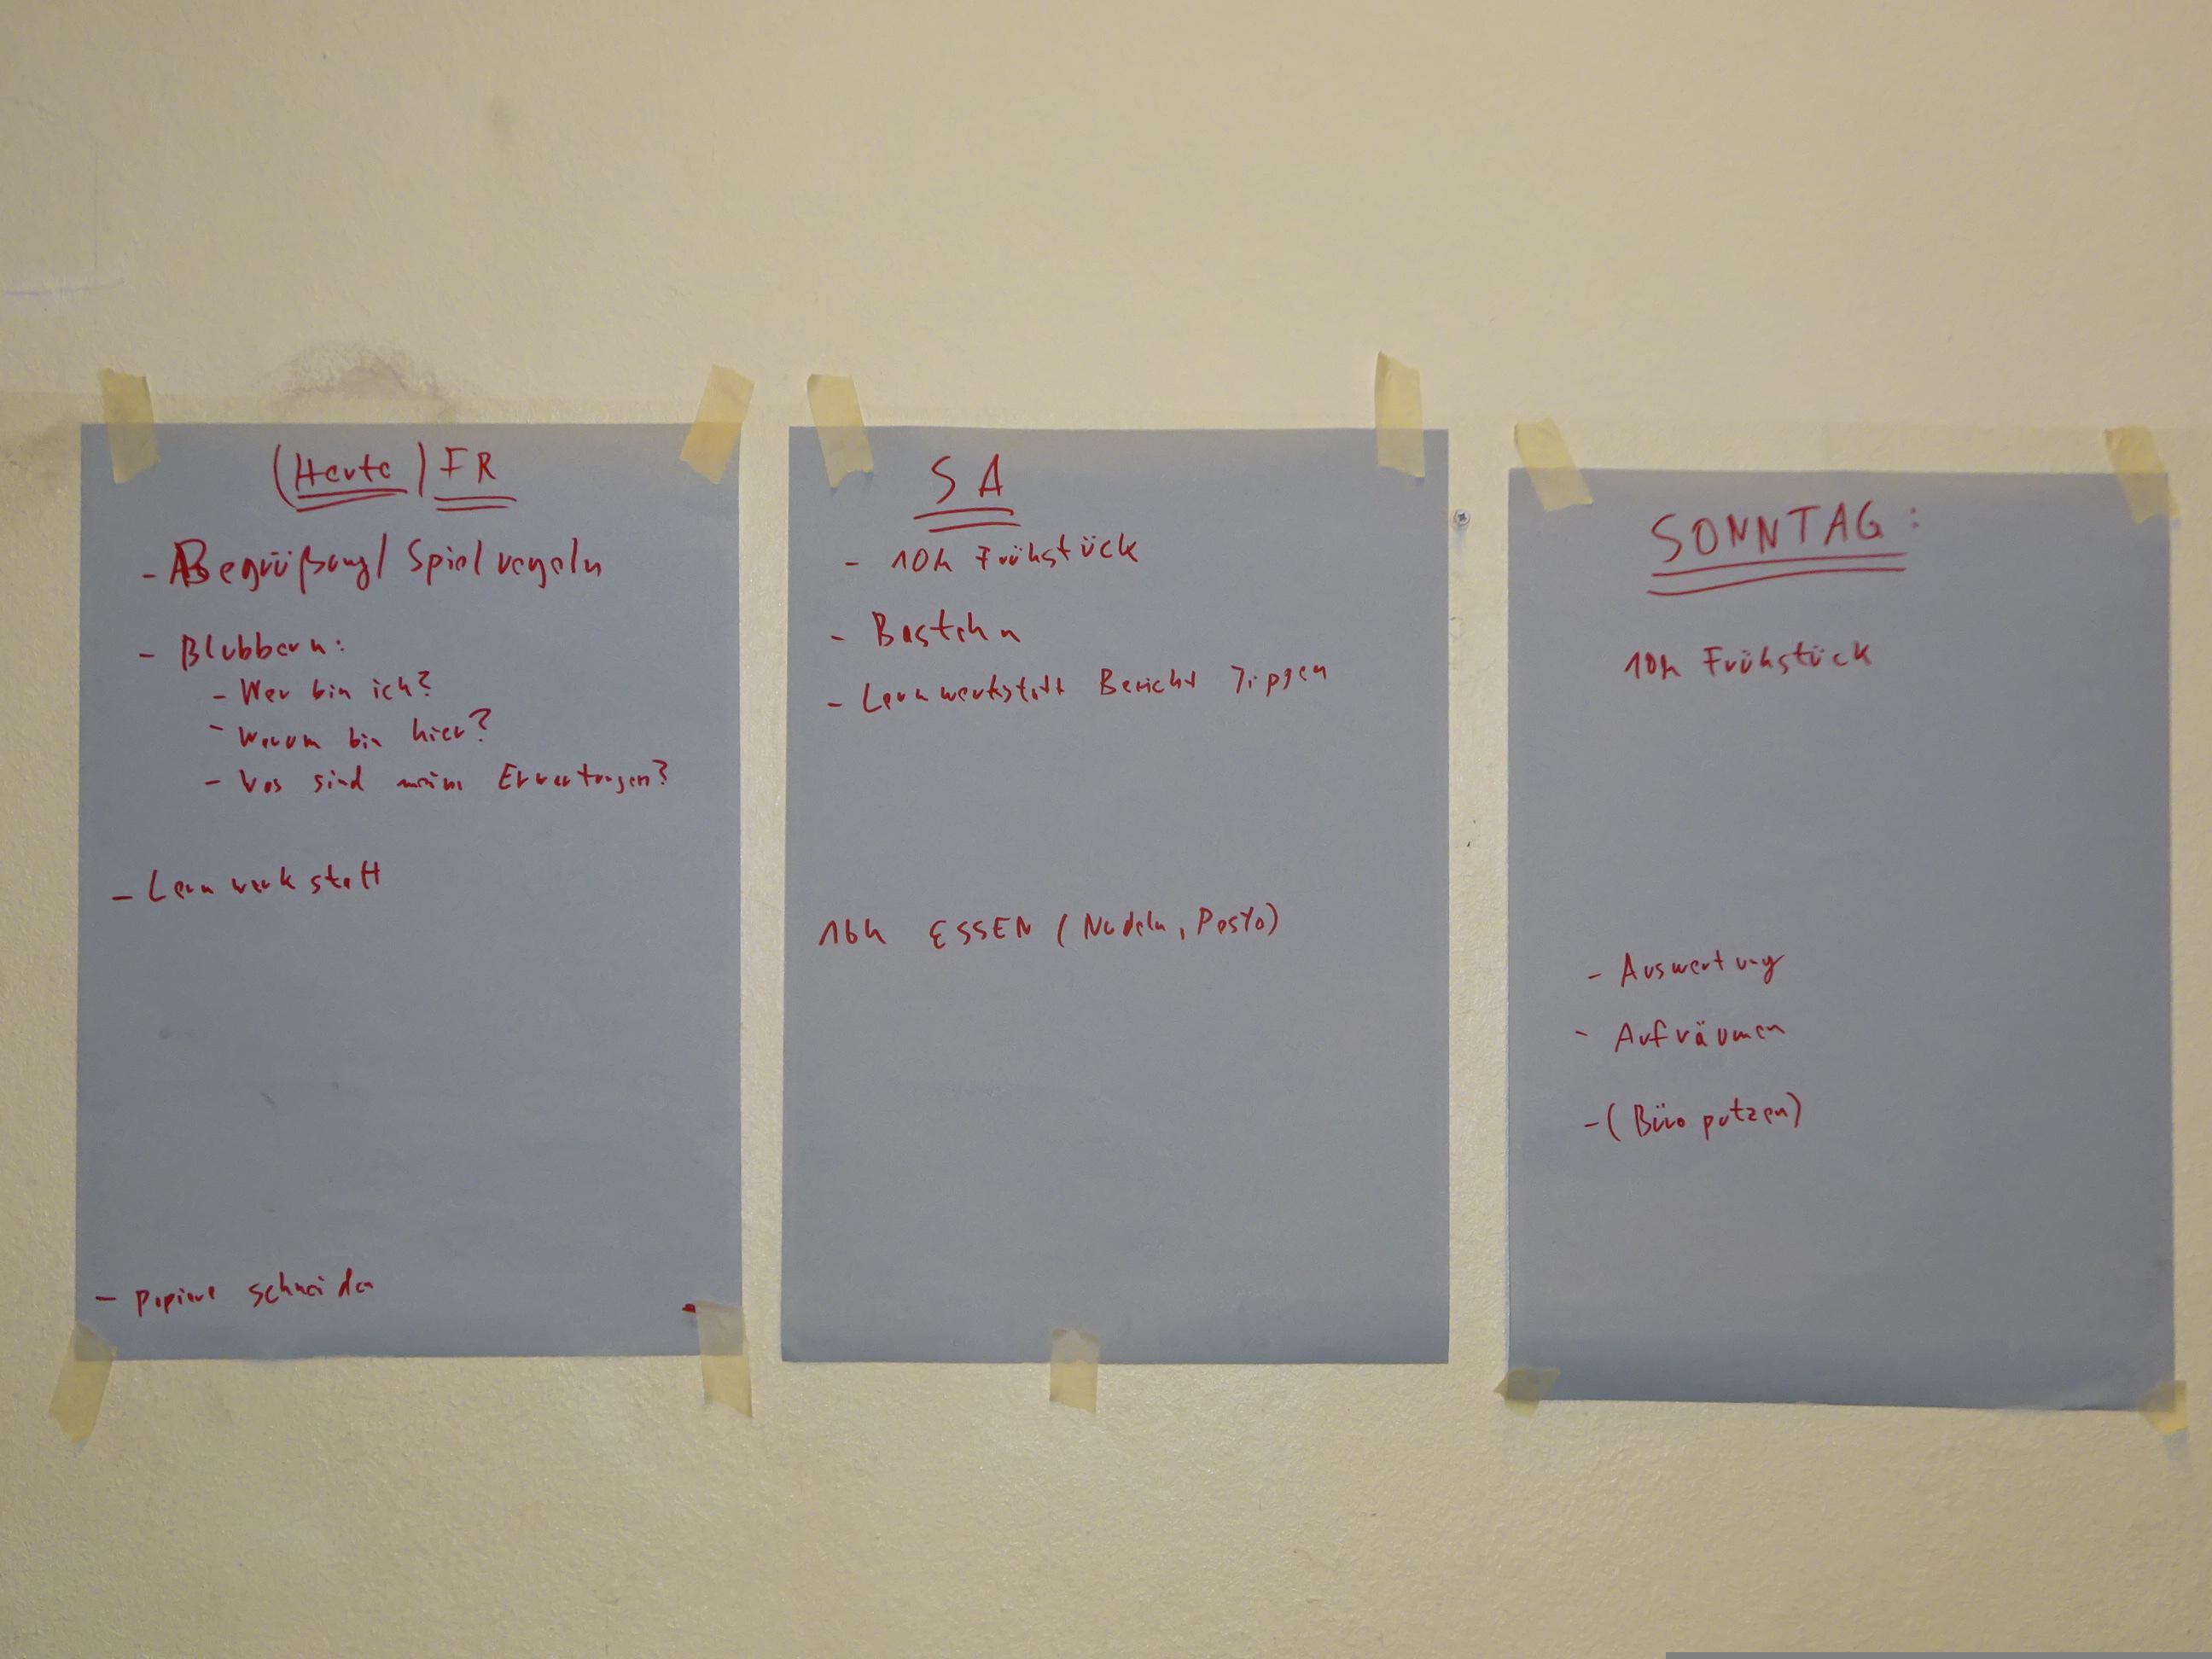 (Heute) FR
- Begrüßung/Spielregeln
- Blubbern:
- Wer bin ich?
- Warum bin hier?
- Was sind meine Erwartungen?
- Lernwerkstatt
- Papiere schneiden
SA
- 10h Frühstück
- Basteln
- Lernwerkstatt Bericht
16h ESSEN (Nudeln, Pesto)
SONNTAG:
10h Frühstück
- Auswertung
- Aufräumen
- (Büro putzen)